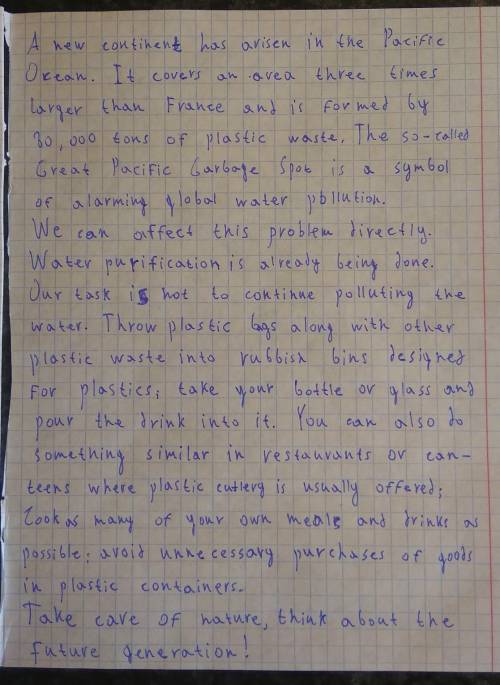 A new continent has arisen in the Pacific
Okean. It covers an area three times
larger than France and is formed by
80,000 tons of plastic waste. The so-called
Great Pacific Garbage Spot is a symbol
of alarming global water pollution.
We can affect this problem directly.
Water purification is already being done.
Our task is not to continue polluting the
water. Throw plastic bgs along with other
plastic waste into rubbish bins designed
for plastics; take your bottle or glass and
pour the drink into it. You can also do
something similar in restaurants or can-
teens where plastic cutlery is usually offered;
Cook as many of your own meals and drinks as
possible; avoid unnecessary purchases of goods
in plastic containers.
Take care of nature, think about the
future generation!